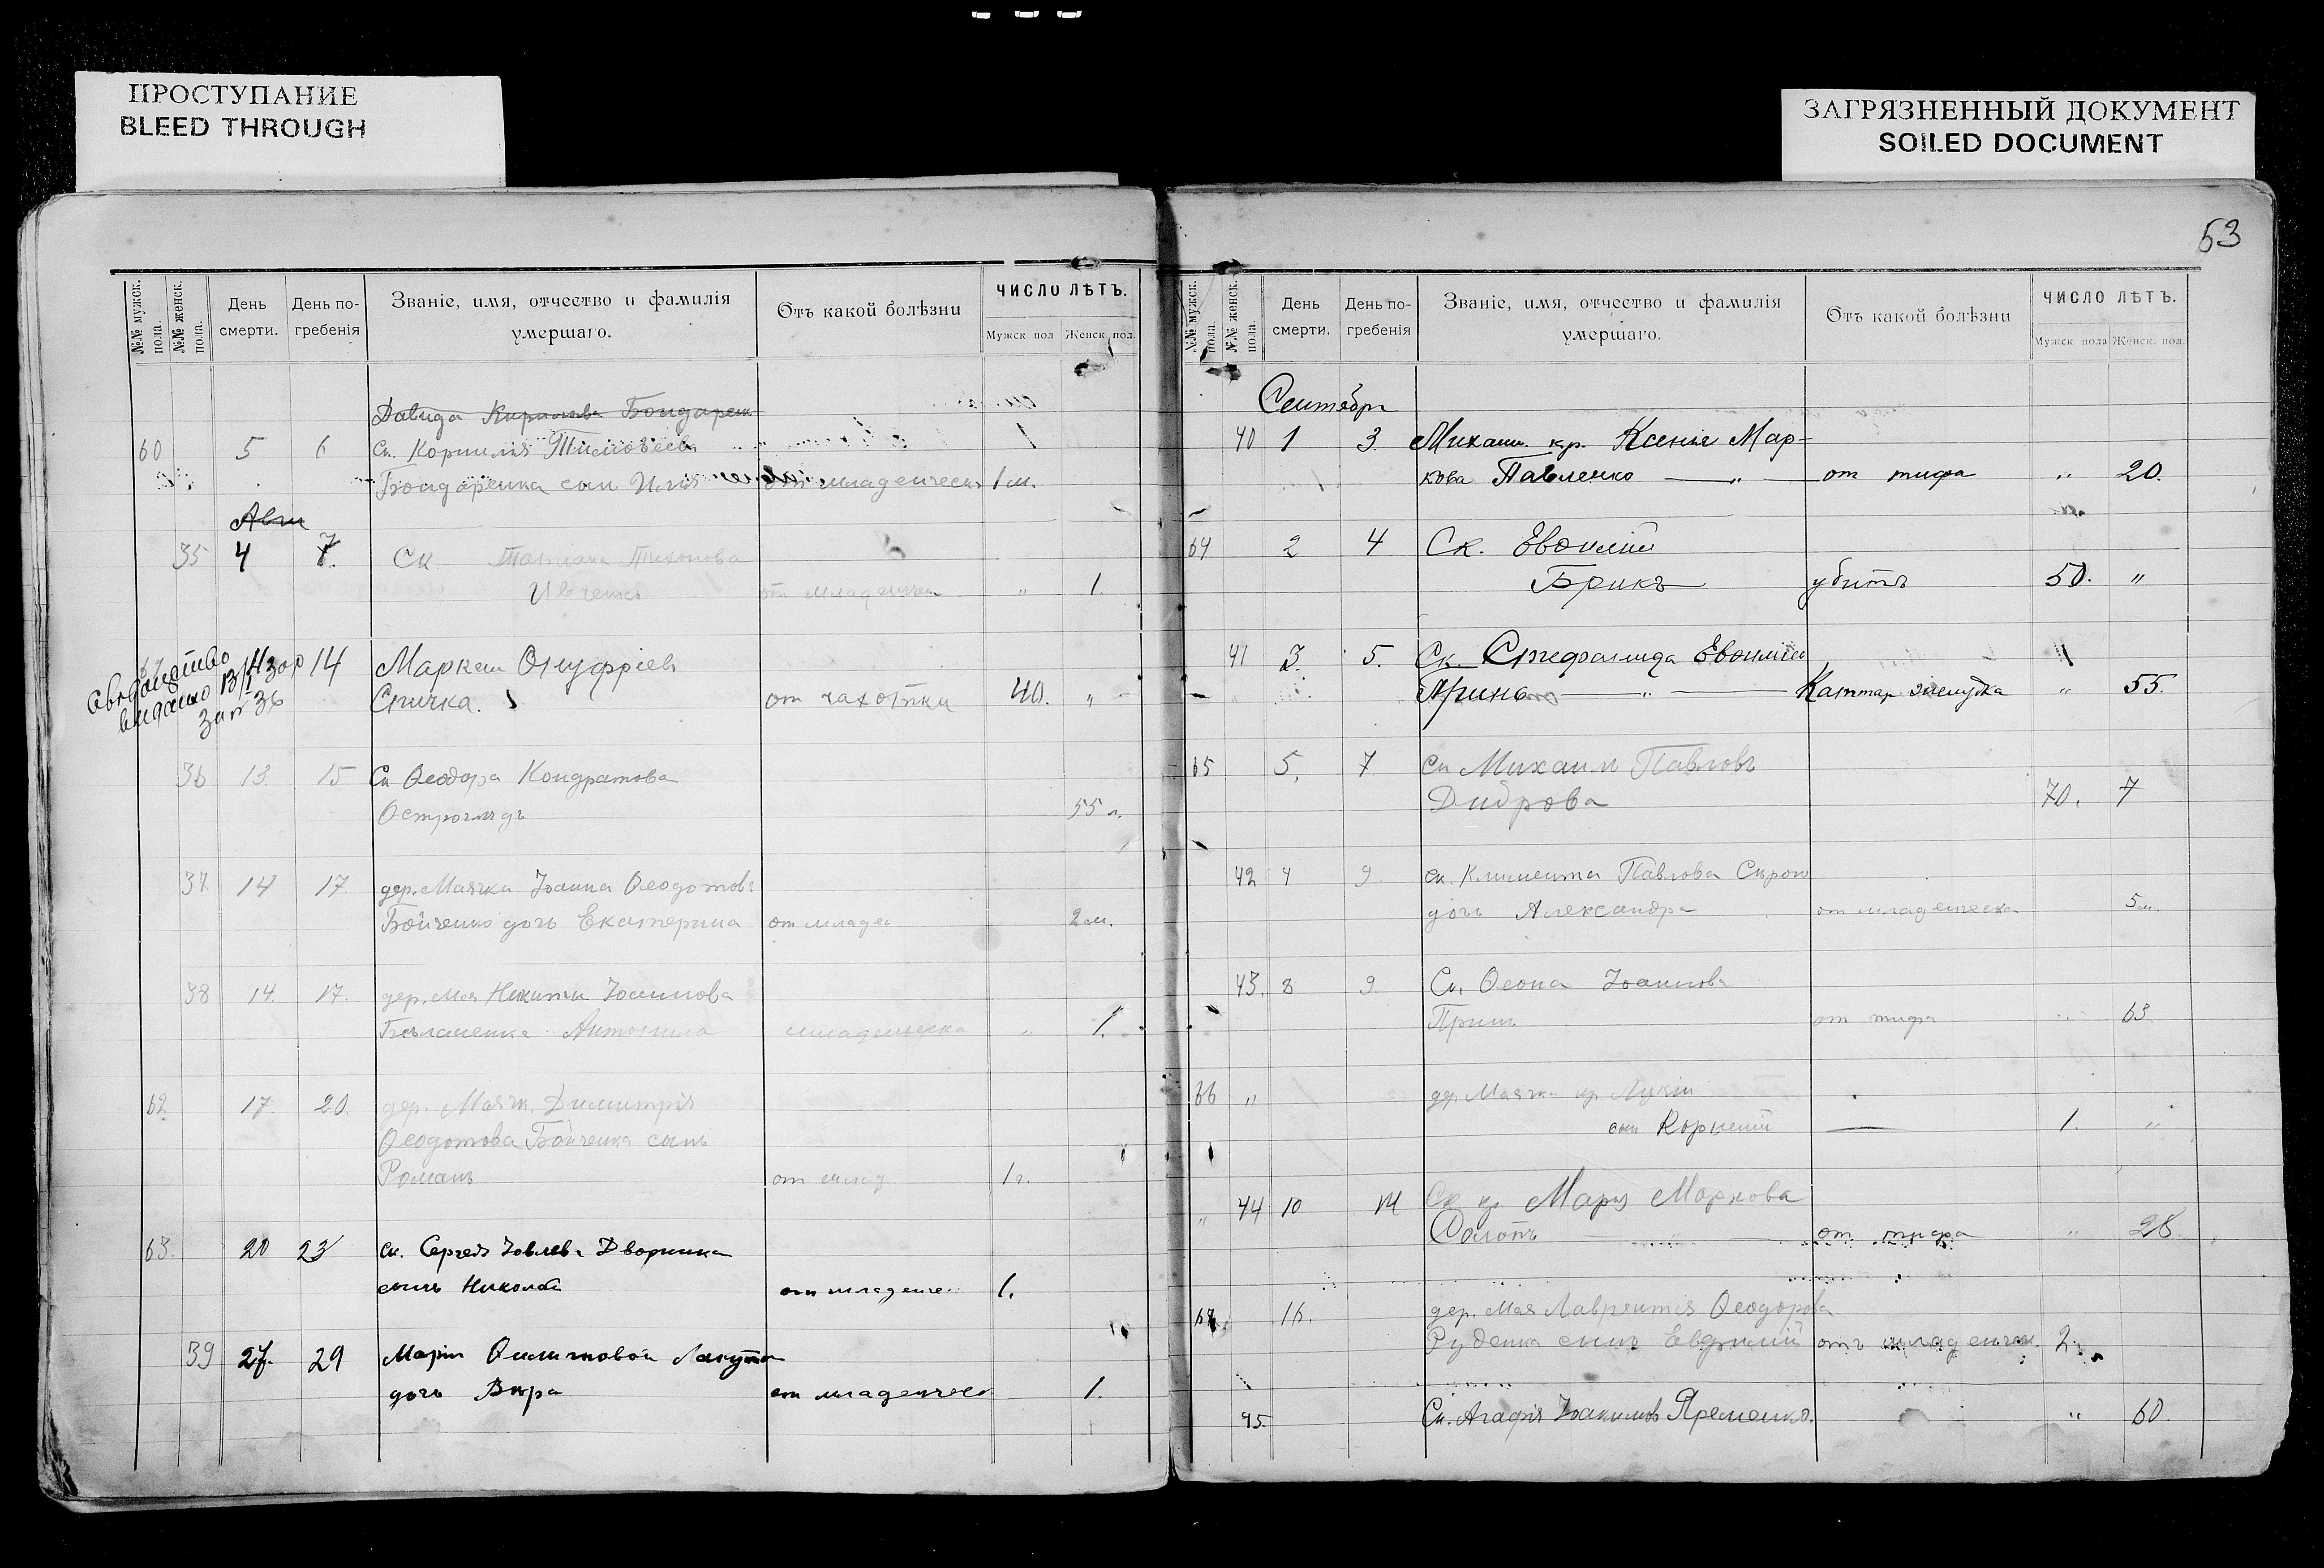 ПРОСТУПАНИЕ
BLEED THROUGH
ЗАГРЯЗНЕННЫЙ ДОКУМЕНТ
SOILED DOCUMENT
№№ мужск. пола.
№№ женск. пола.
День смерти.
День погребенія
Званіе, имя, отчество и фамилія
умершаго.
Отъ какой болѣзни
ЧИСЛО ЛѢТЪ.
Мужск пол
Женск. пол.
Давида Бондарен
60 5 6 Ск. Корнилія Тимоѳеева
Бондаренка сын Илія от младенческ 1 м.
Авг
35 4 7. Ск Татіана Тихонова
от младенческ " 1.
Свидетельство
видано
14 Маркел Онуфріевъ
Спичка. от чахотки 40. "
36 13 15 Ск Ѳеодора Кондратова
Остроглядъ 55 л.
37 14 17 дер. Маячки Іоанна Ѳеодотова
Бойченко дочь Екатерина от младен 2 м.
38 14. 17. дер. Мая Никиты Іоаннова
Антонина младенческа " 1.
62 17. 20. дер. Маячк. Димитрія
Ѳеодотова Бойченка сынъ
Романъ от млад 1 г.
63. 20 23 ск. Сергея Іовлева Дворника
сынъ Николай от младенче 1.
39 27. 29 Маріи
дочь Вѣра от младенчес 1.
53
№№ мужск. пола.
№№ женск. пола.
День смерти.
День погребенія
Званіе, имя, отчество и фамилія
умершаго.
Отъ какой болѣзни
ЧИСЛО ЛѢТЪ.
Мужск пола
Женск. пол.
Сентябрь
40 1 3. Михаил. кр. Ксенія Мар-
кова Павленко " от тифа " 20.
64 2 4 Ск. Евѳимій
Брикъ убитъ 50. "
41 3. 5. Ск. Стефанида Евѳимія
" Каттар желудка " 55.
65 5. 7 Ск Михаилъ Павловъ
70.
42 9 Ск. Климента Павлова
дочь Александра от младенческа 5 м
43. 8 9 Ск. Ѳеона Іоаннова
от тифа " 63.
66 " дер Маячки кр Лукіи
сын Корнелій 1. "
" 44 10 Ск кр. Маркова
от тифа " 28
67. 16. дер. Мая Лаврентія Ѳеодорова
Руденка сынъ отъ младенческ. 2.
45. Ск. Агафія Іоакимов Яременко. " 60.